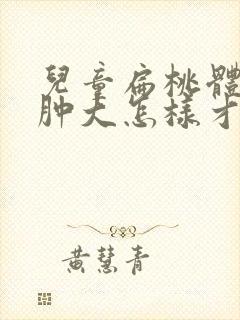 兒童扁桃體
肿大怎樣才
黃慧青